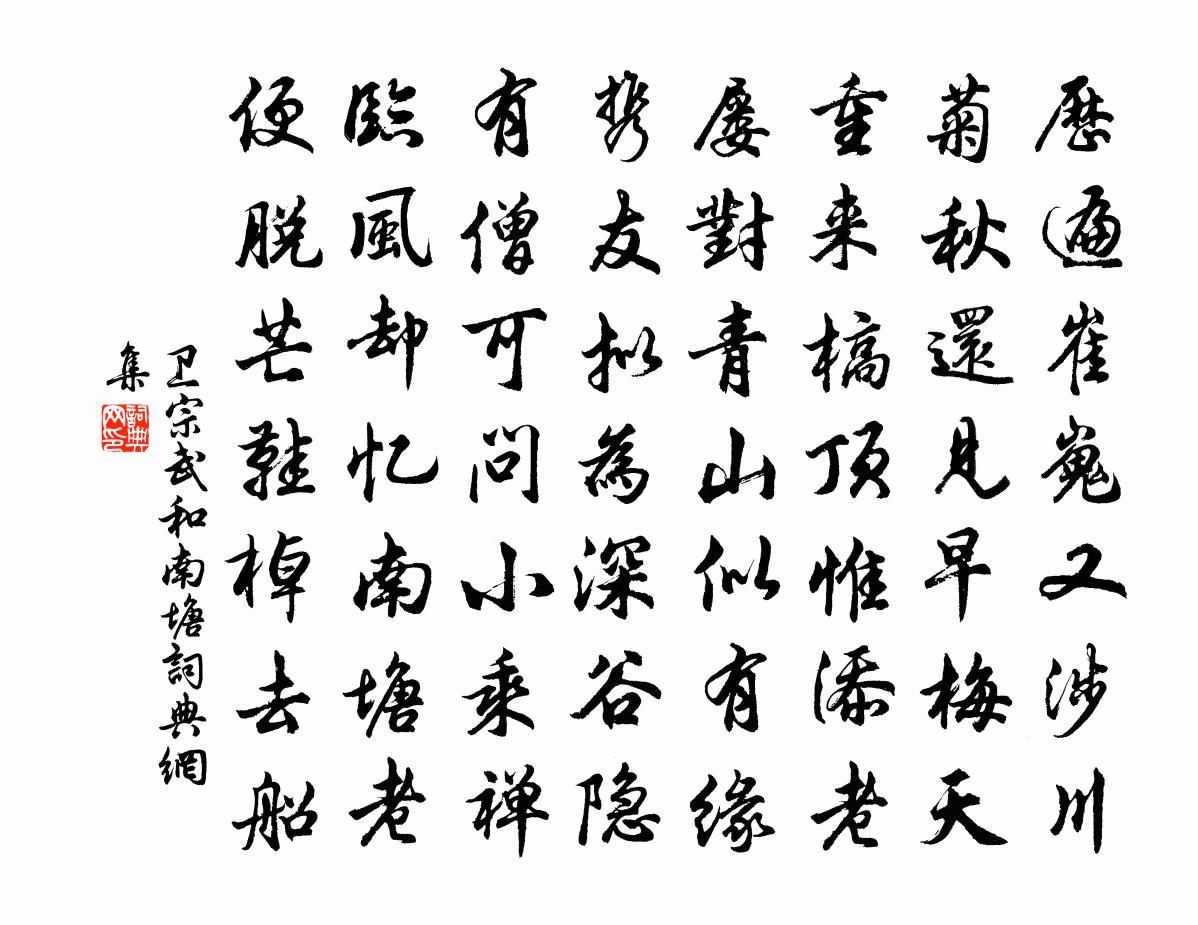 歷遍崔嵬又涉川
菊秋還見早梅天
重来槁頂惟添老
屡對青山似有緣
携友拟為深谷隐
有僧可問小乘禅
臨風却忆南塘老
便脱芒鞋棹去船
卫宗武和南塘詞典網
集
詞典网印